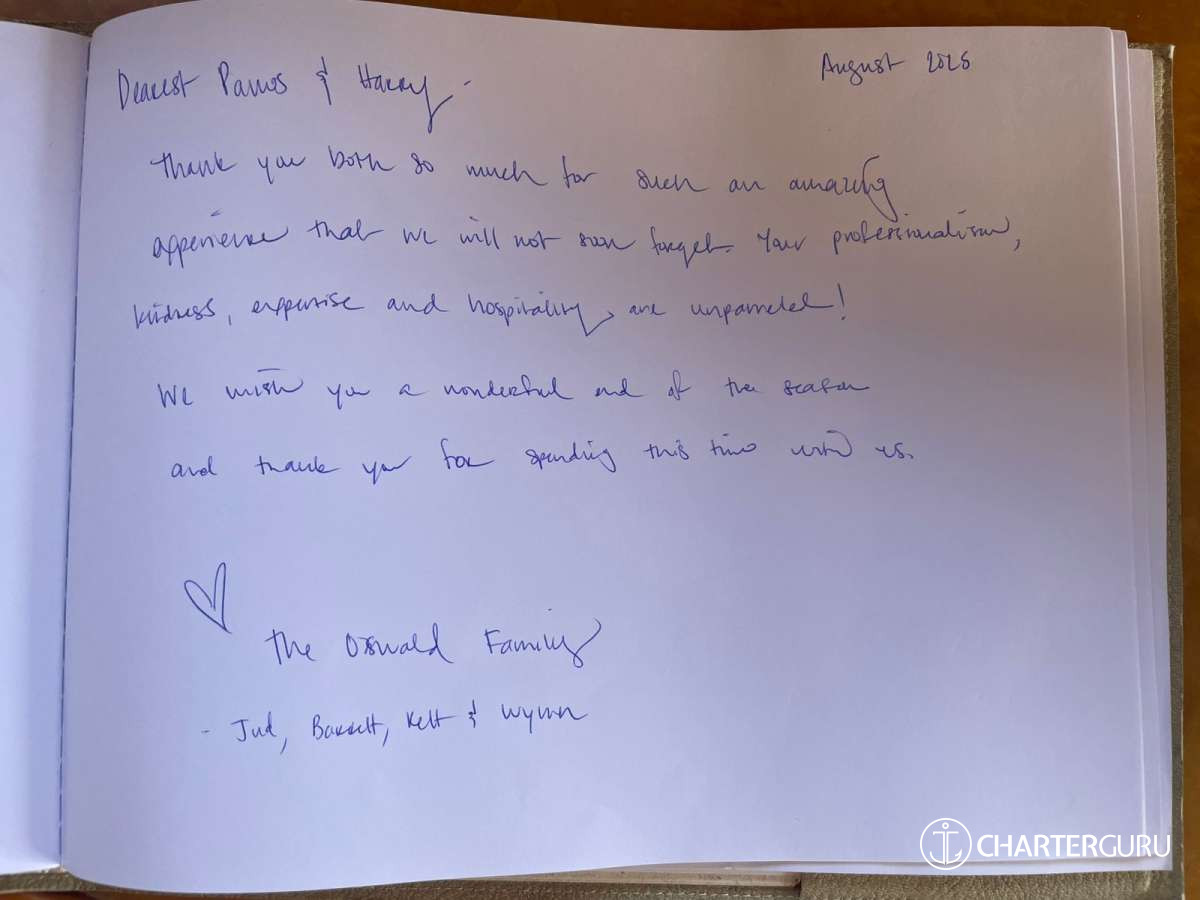 Dearest Panos & Harry -
August 2025
Thank you both so much for such an amazing
experience that we will not soon forget. Your professionalism,
kindness, expertise and hospitality, are unparraled!
We wish you a wonderful end of the season
and thank you for spending this time with us.
The Oswald Family
- Jud, Barrett, Kett & Wynn
CHARTERGURU